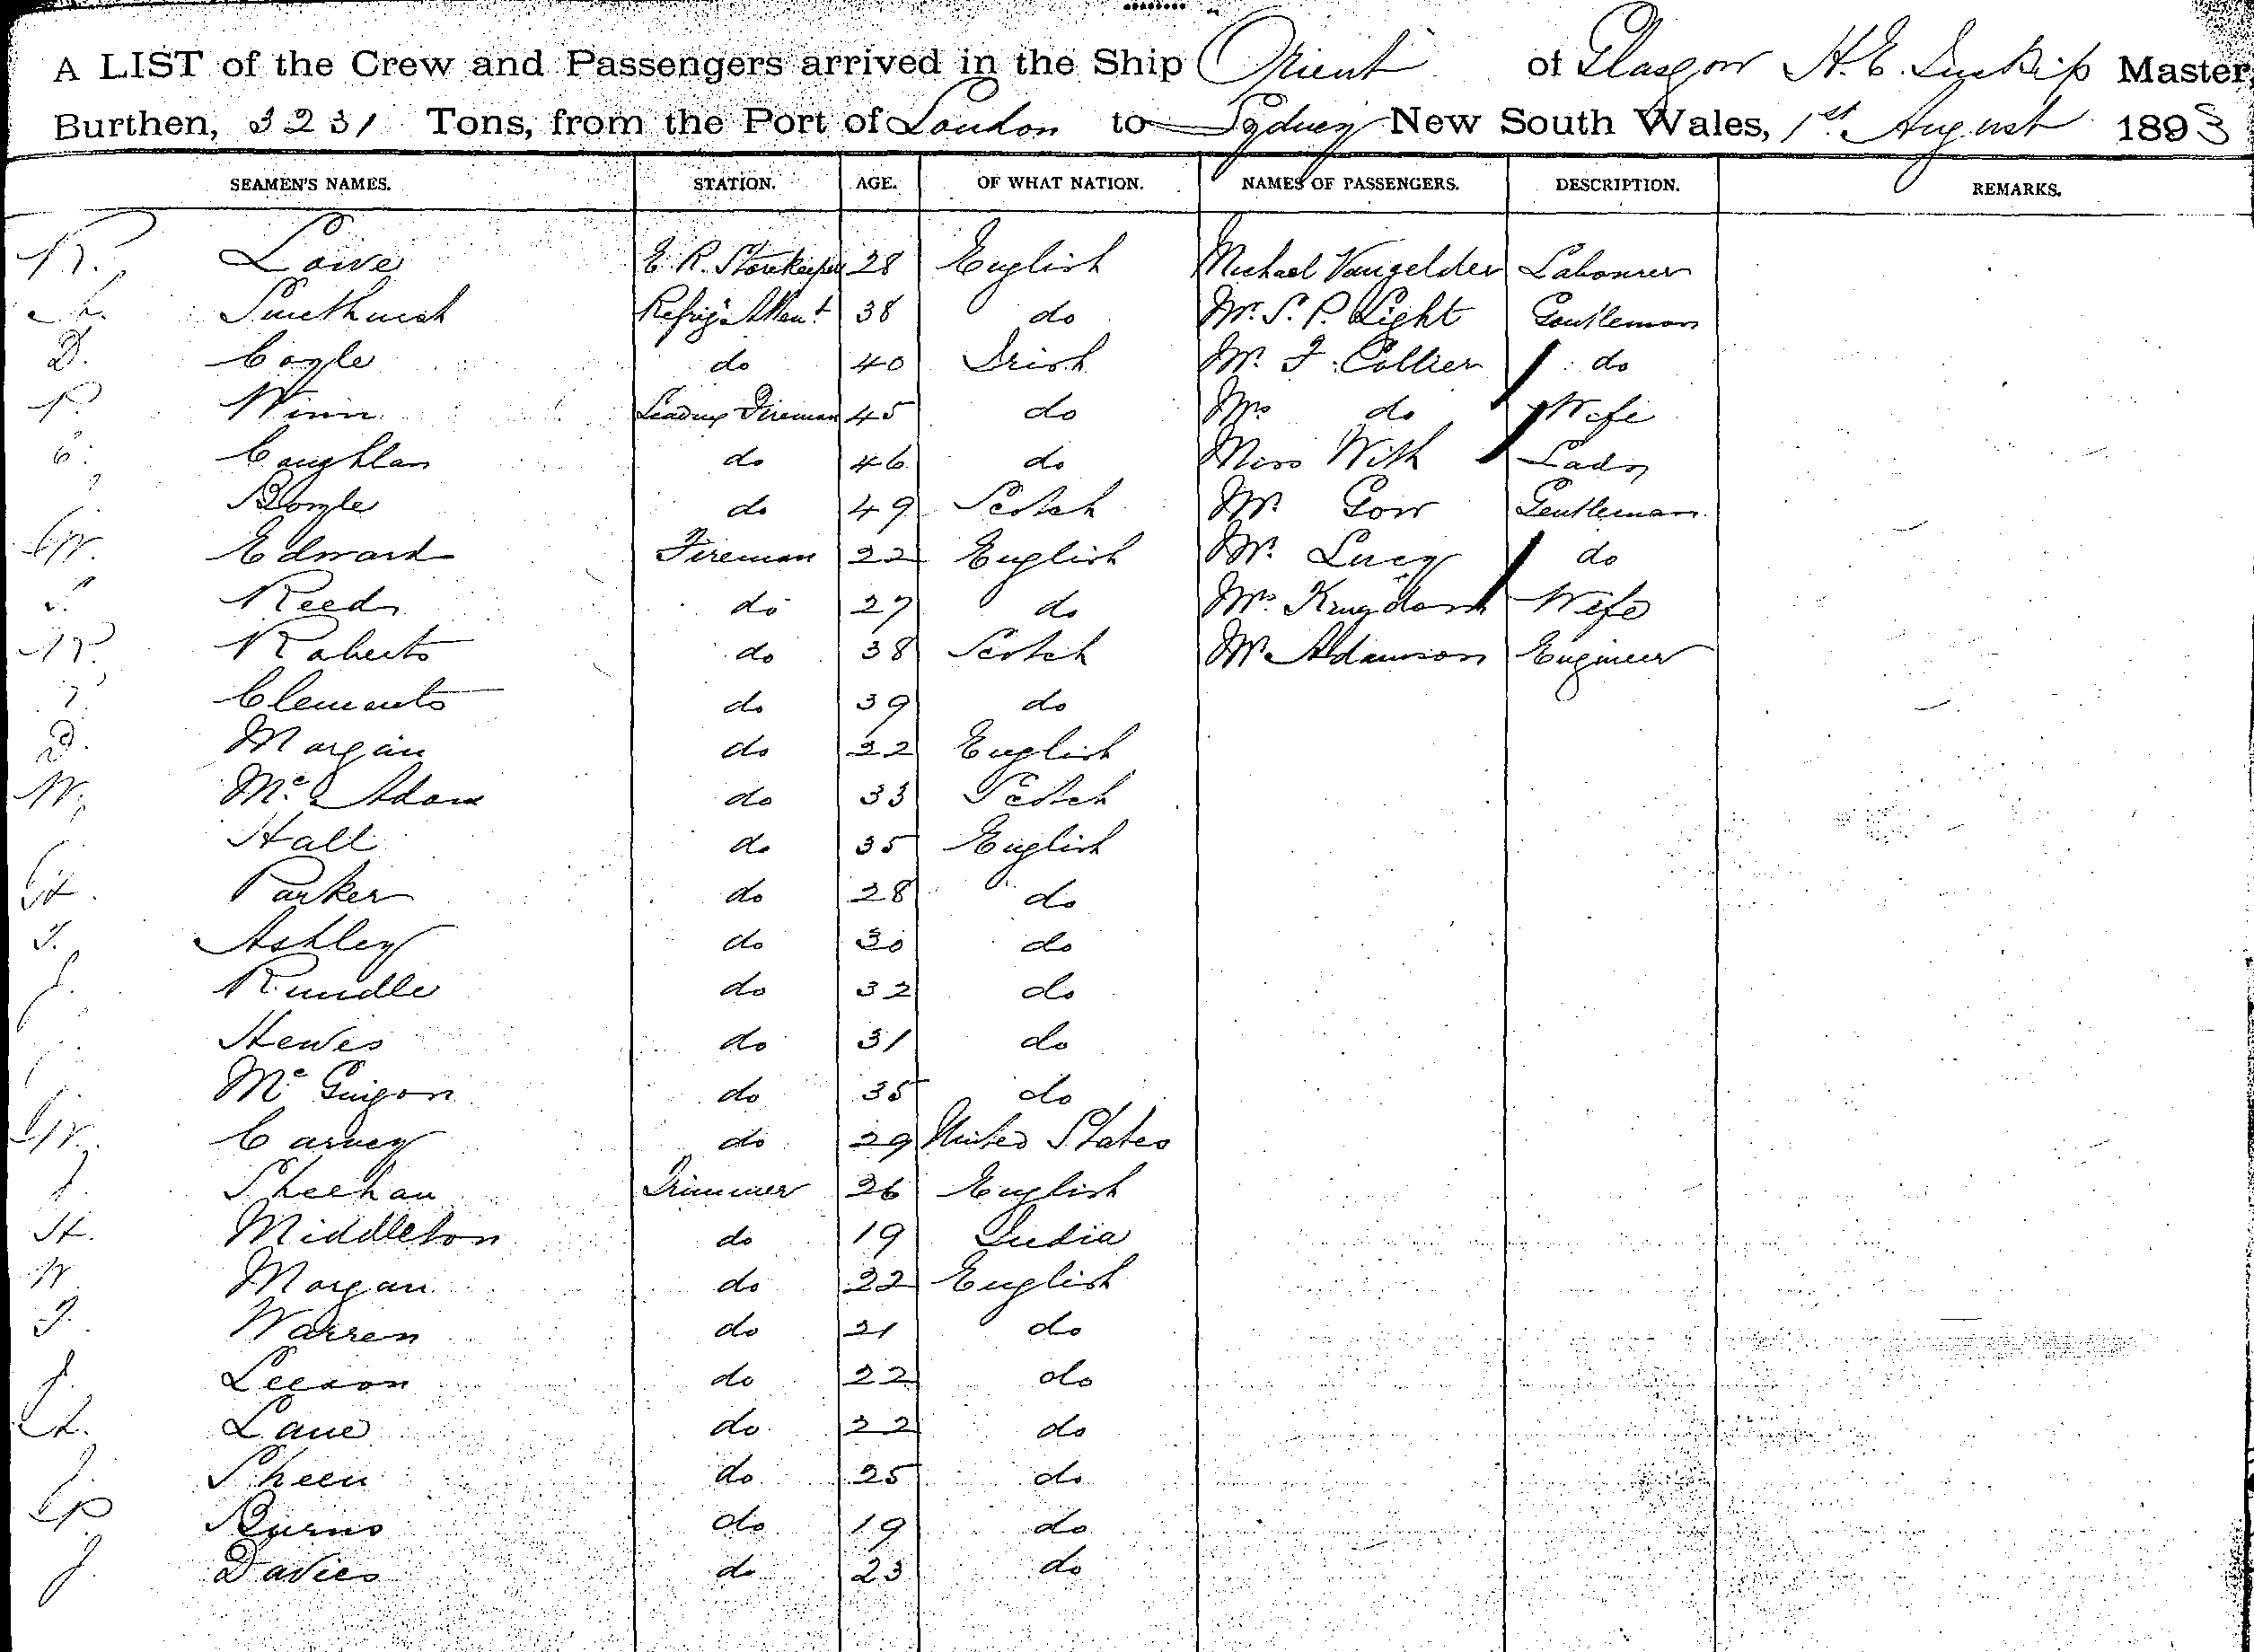 A LIST of the Crew and Passengers arrived in the Ship Orient of Glasgow H. E. Inskip Master,
Burthen, 3231 Tons, from the Port of London to Sydney New South Wales, 1st August 1893
SEAMEN'S NAMES. STATION. AGE. OF WHAT NATION. NAMES OF PASSENGERS. DESCRIPTION. REMARKS.
Lowe E. R. Storekeeper 28 English Michael Vangelder Labourer
Smethurst Refrig. Attent 38 do Mr. S. P. Light Gentleman
D. Coyle do 40 Irish Mr. F. Collier do
P. Winn Leading Fireman 45 do Mrs do Wife
C. Coughlan do 46 do Miss With Lady
Boyle do 49 Scotch Mr Gow Gentleman
W. Edward Fireman 22 English Mr. Lucy do
Reed do 27 do Mrs Kingdom Wife
Roberts do 38 Scotch Mr Adamson Engineer
Clements do 39 do
D. Morgan do 22 English
W. McAdam do 33 Scotch
Hall do 35 English
H. Parker do 28 do
T. Ashley do 30 do
J. Rundle do 32 do
Hewes do 31 do
McGuigon do 35 do
W. Carney do 29 United States
J. Sheehan Trimmer 26 English
H. Middleton do 19 India
W Morgan do 22 English
T. Warren do 21 do
J. Leeson do 22 do
Lane do 22 do
J. Sheen do 25 do
Burns do 19 do
J. Davies do 23 do